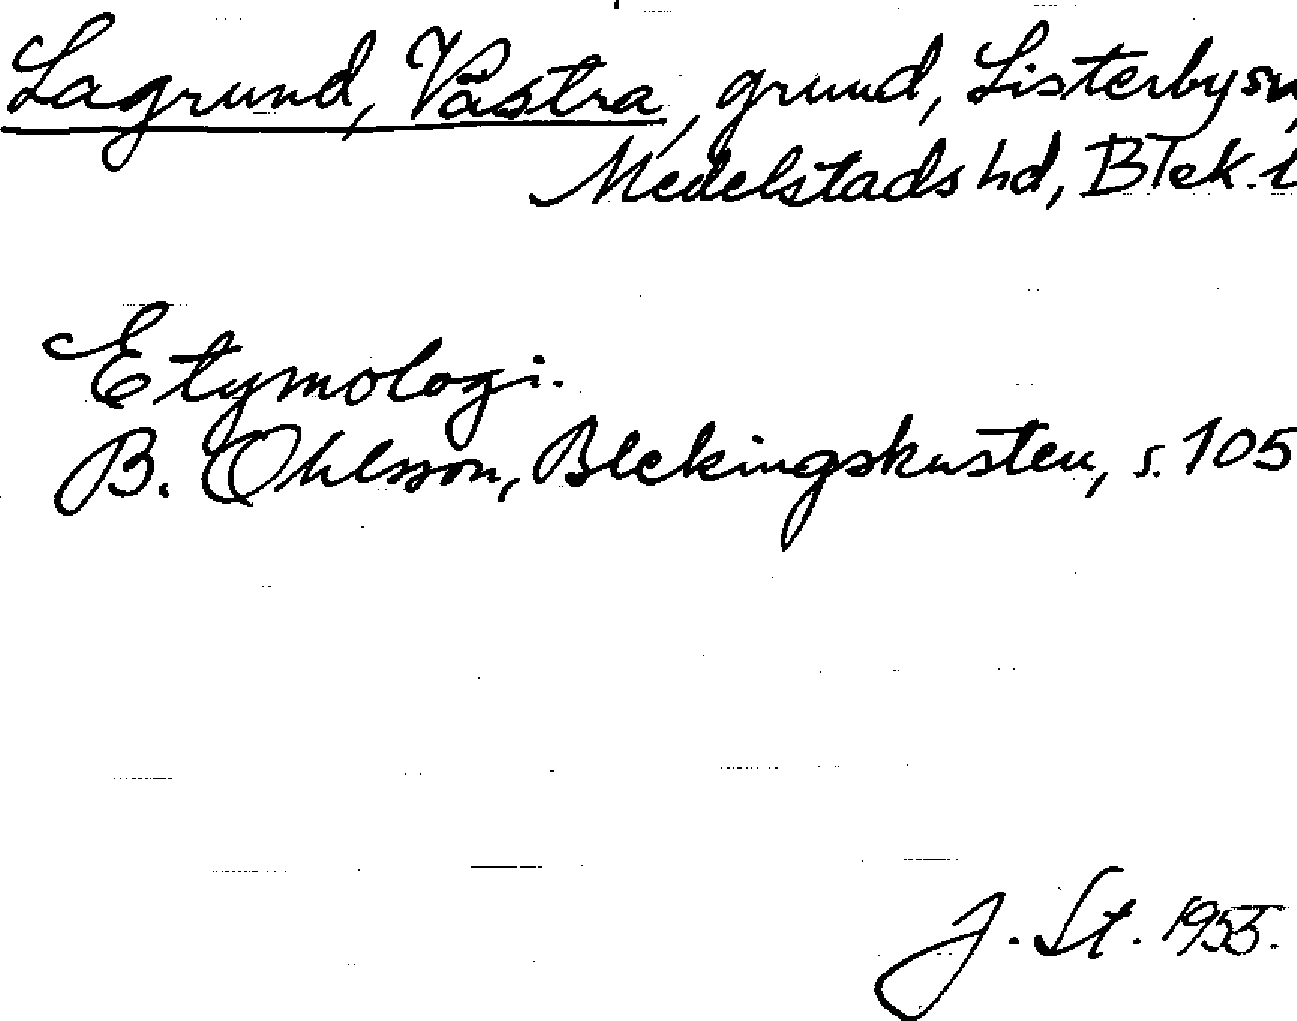 Lagrund, Västra, grund, Listerby sn,
Medelstads hd, Blek. l
Etymologi.
B. Ohlsson, Blekingskusten, s. 105
J. St. 1955.